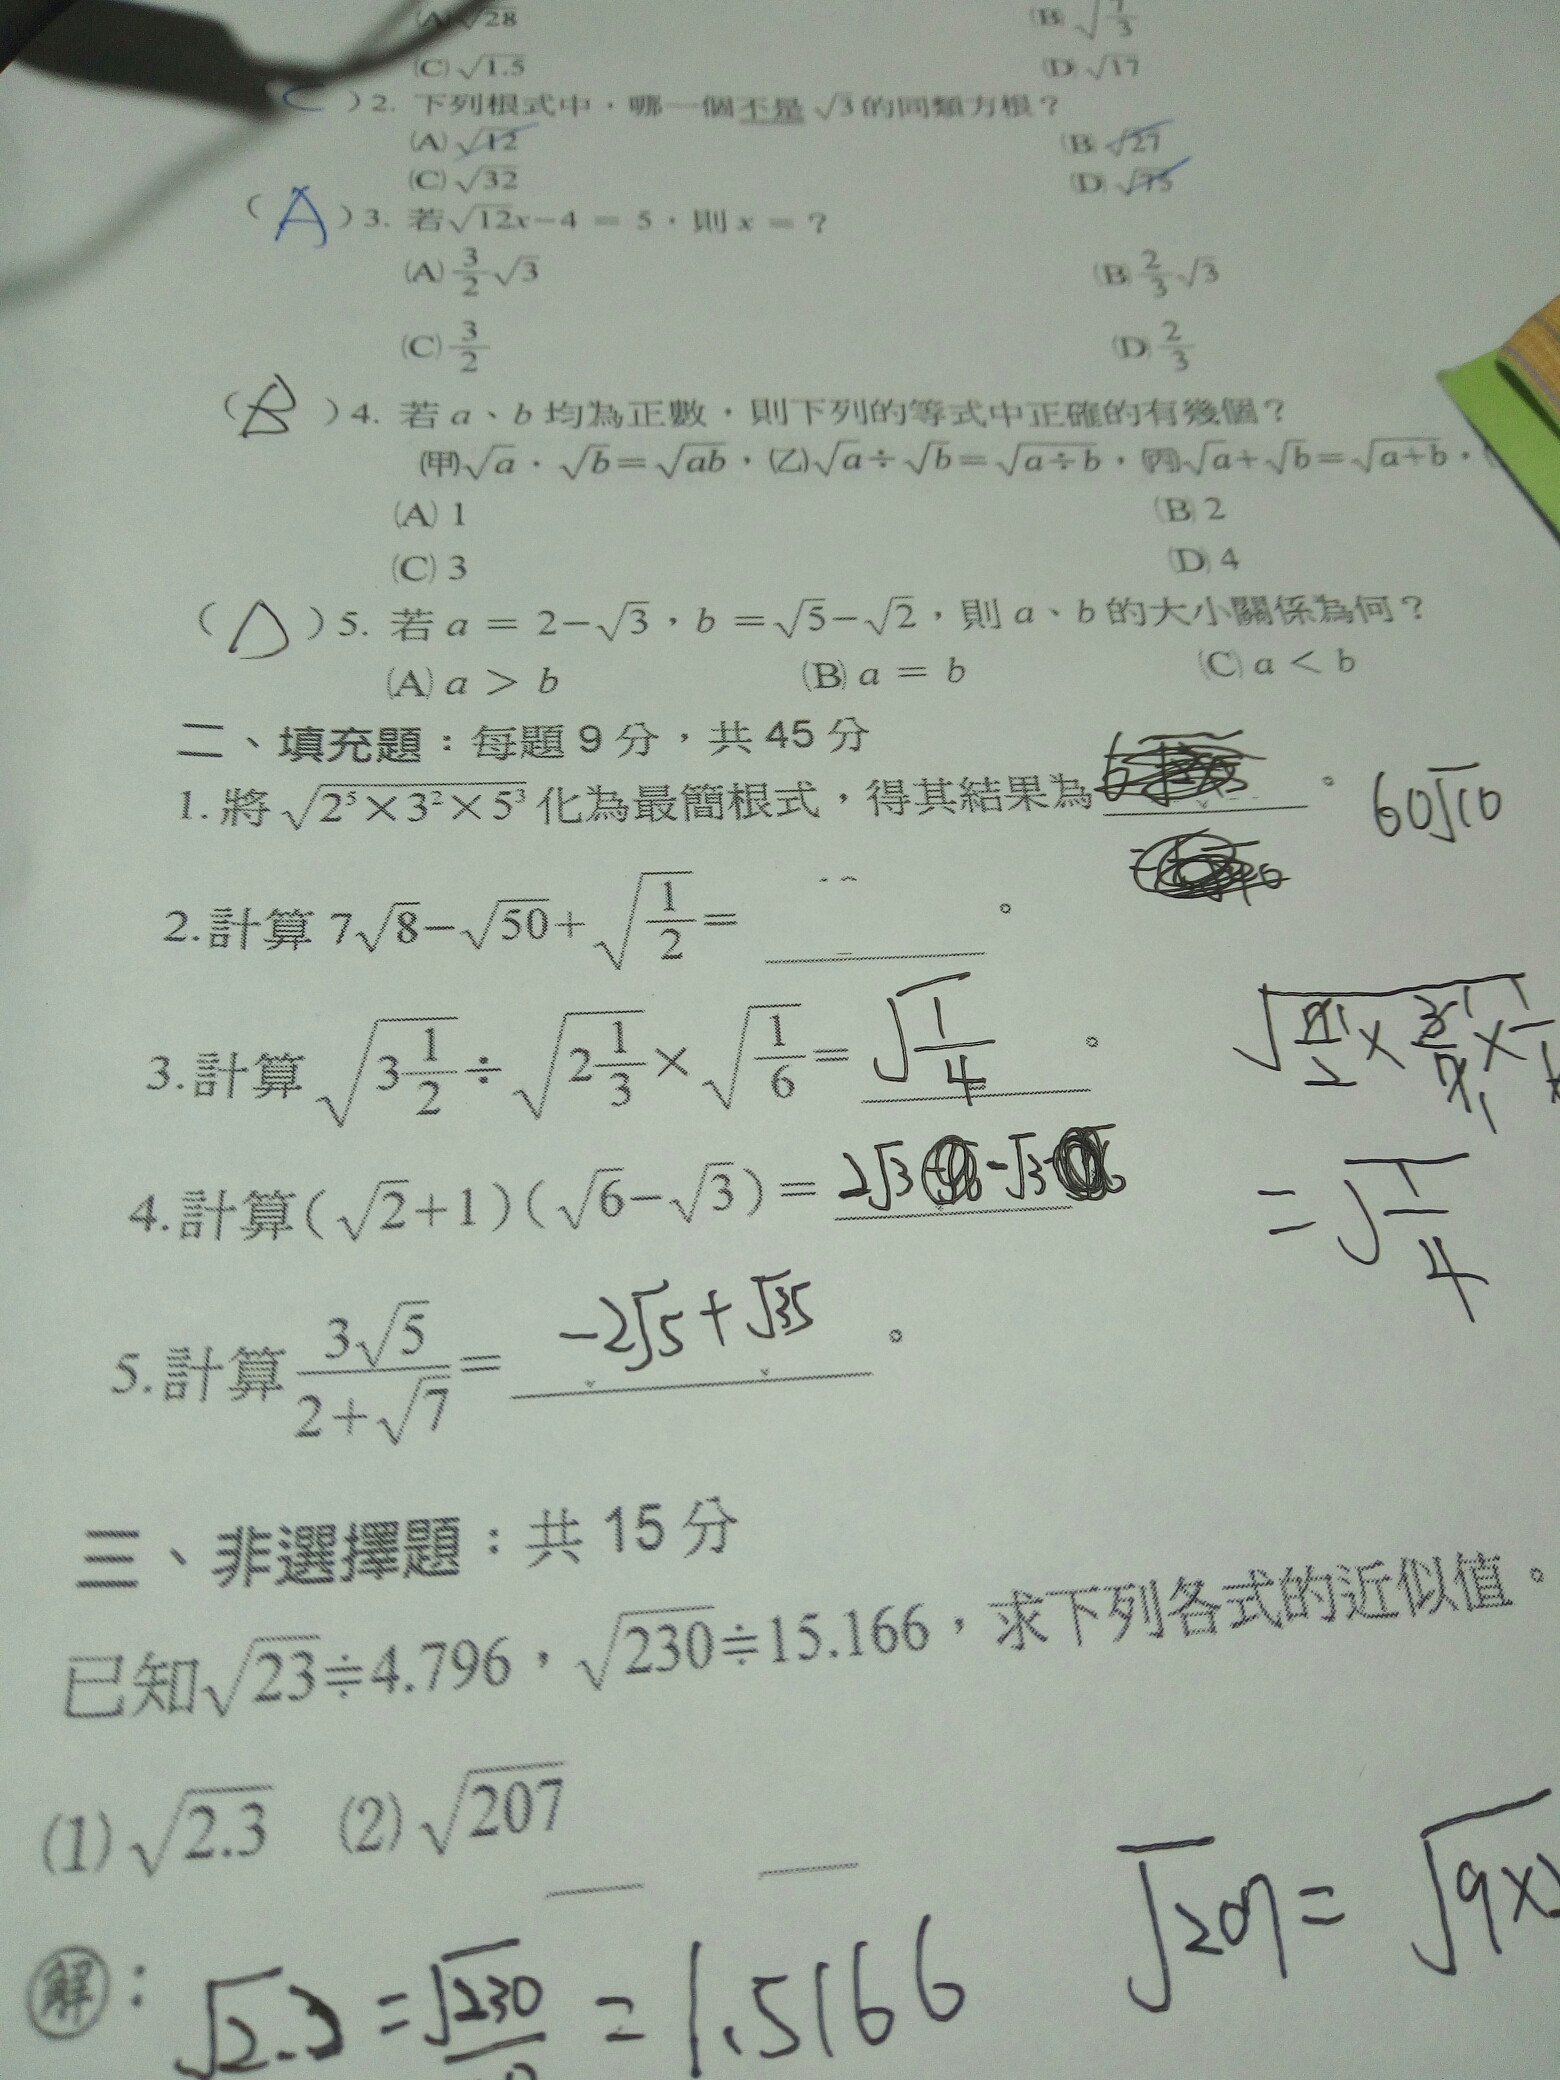 (A) √28 (B) √(7/3)
(C) √1.5 (D) √17
( C ) 2. 下列根式中，哪一個不是 √3 的同類方根？
(A) √12 (B) √27
(C) √32 (D) √75
( A ) 3. 若√12x－4 = 5，則 x = ？
(A) 3/2 √3 (B) 2/3 √3
(C) 3/2 (D) 2/3
( B ) 4. 若 a、b 均為正數，則下列的等式中正確的有幾個？
(甲)√a · √b = √ab，(乙)√a ÷ √b = √(a÷b)，(丙)√a + √b = √(a+b)，
(A) 1 (B) 2
(C) 3 (D) 4
( ) 5. 若 a = 2－√3，b = √5－√2，則 a、b 的大小關係為何？
(A) a > b (B) a = b (C) a < b
二、填充題：每題 9 分，共 45 分
1. 將 √(2⁵×3²×5³) 化為最簡根式，得其結果為 。 60√10
2. 計算 7√8－√50＋√(1/2) = 。
3. 計算 √(3 1/2) ÷ √(2 1/3) × √(1/6) = √(1/4) 。
= √(1/4)
4. 計算(√2+1)(√6－√3) = 2√3 －√3
5. 計算 3√5/(2+√7) = －2√5 + √35 。
三、非選擇題：共 15 分
已知√23≒4.796，√230≒15.166，求下列各式的近似值。
(1) √2.3 (2) √207
解： √2.3 = √230/10 = 1.5166 √207 = √9×